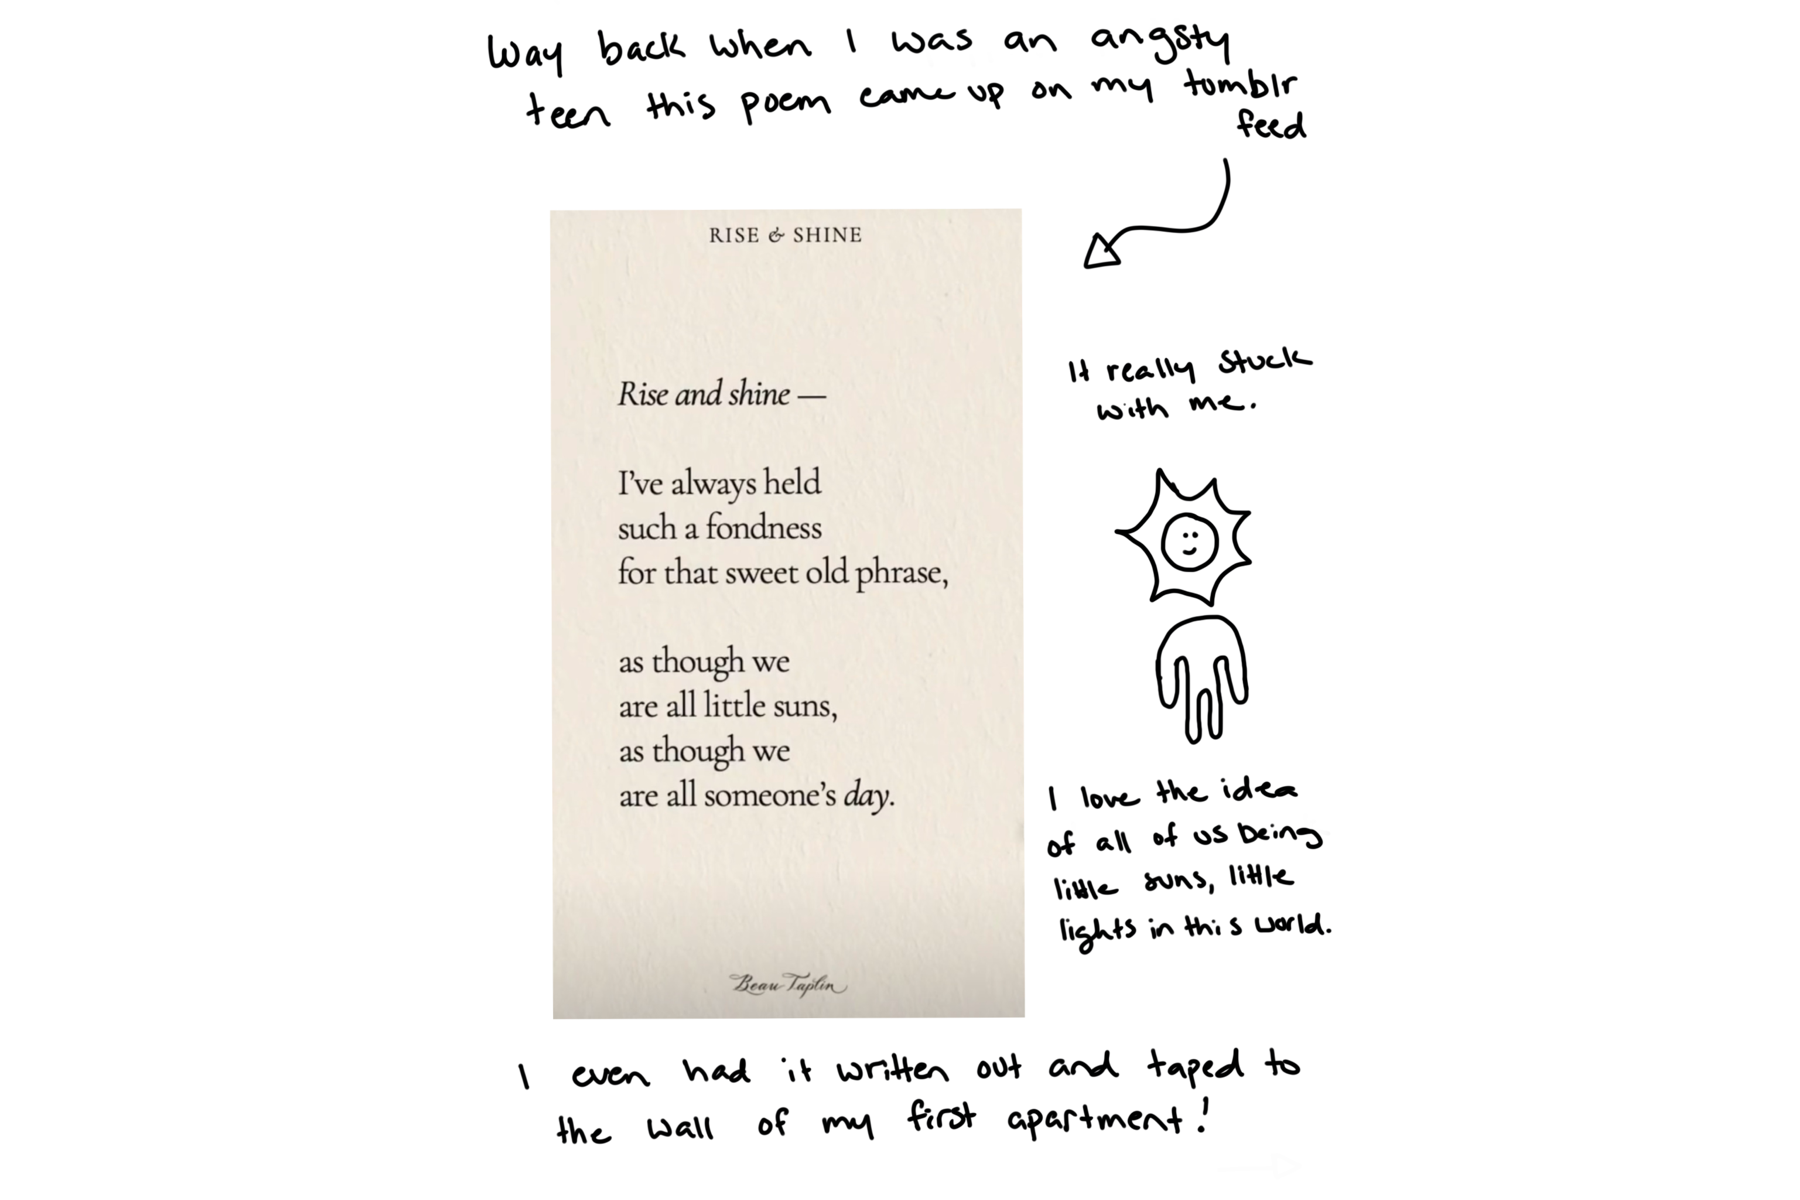 Way back when I was an angsty
teen this poem came up on my tumblr
feed
RISE & SHINE
Rise and shine —
I've always held
such a fondness
for that sweet old phrase,
as though we
are all little suns,
as though we
are all someone's day.
Beau Taplin
It really stuck
with me.
I love the idea
of all of us being
little suns, little
lights in this world.
I even had it written out and taped to
the wall of my first apartment!